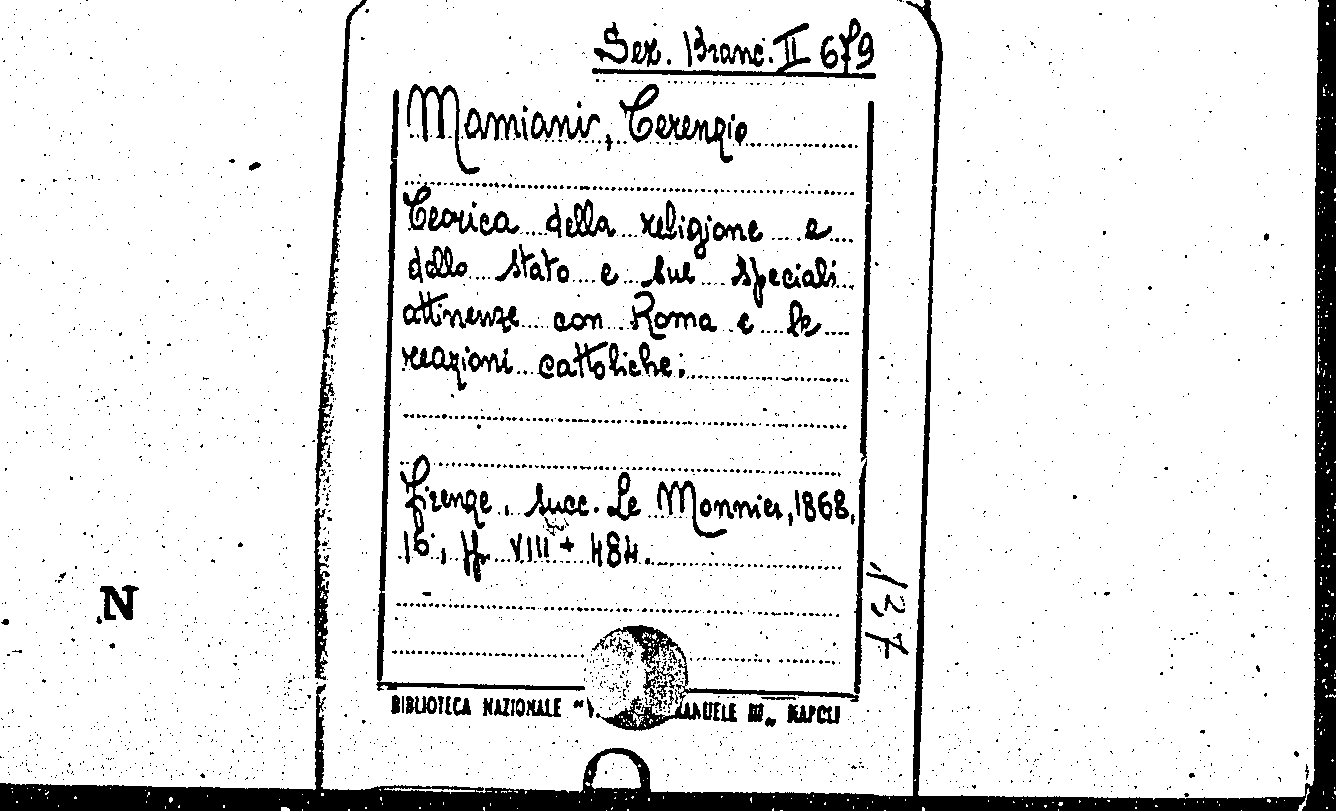 Sez. Branc. II 679
Mamiani, Terenzio
Teorica della religione e
dello stato e sue speciali
attinenze con Roma e le
reazioni cattoliche;
Firenze, succ. Le Monnier, 1868.
16, pp. VIII + 484.
137
N
BIBLIOTECA NAZIONALE "V. MANUELE III„ NAPOLI